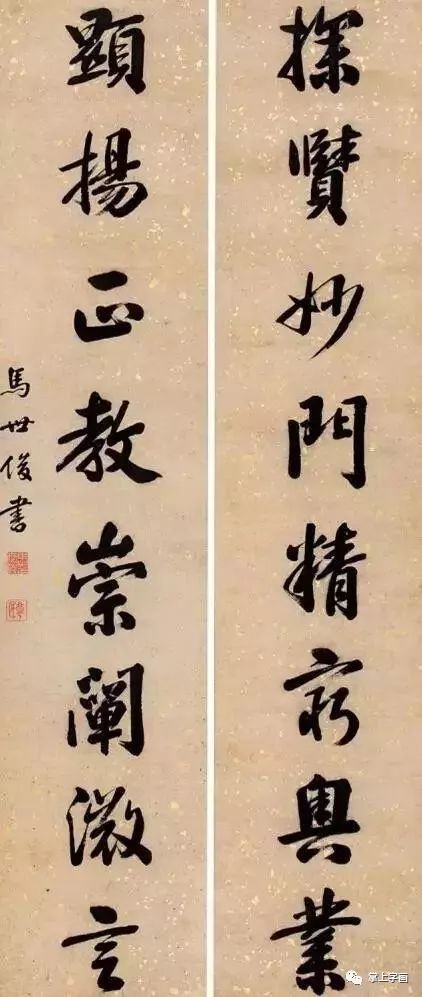 探賾妙門精窮奧業
顯揚正教崇闡微言
馬世俊書
掌上字画